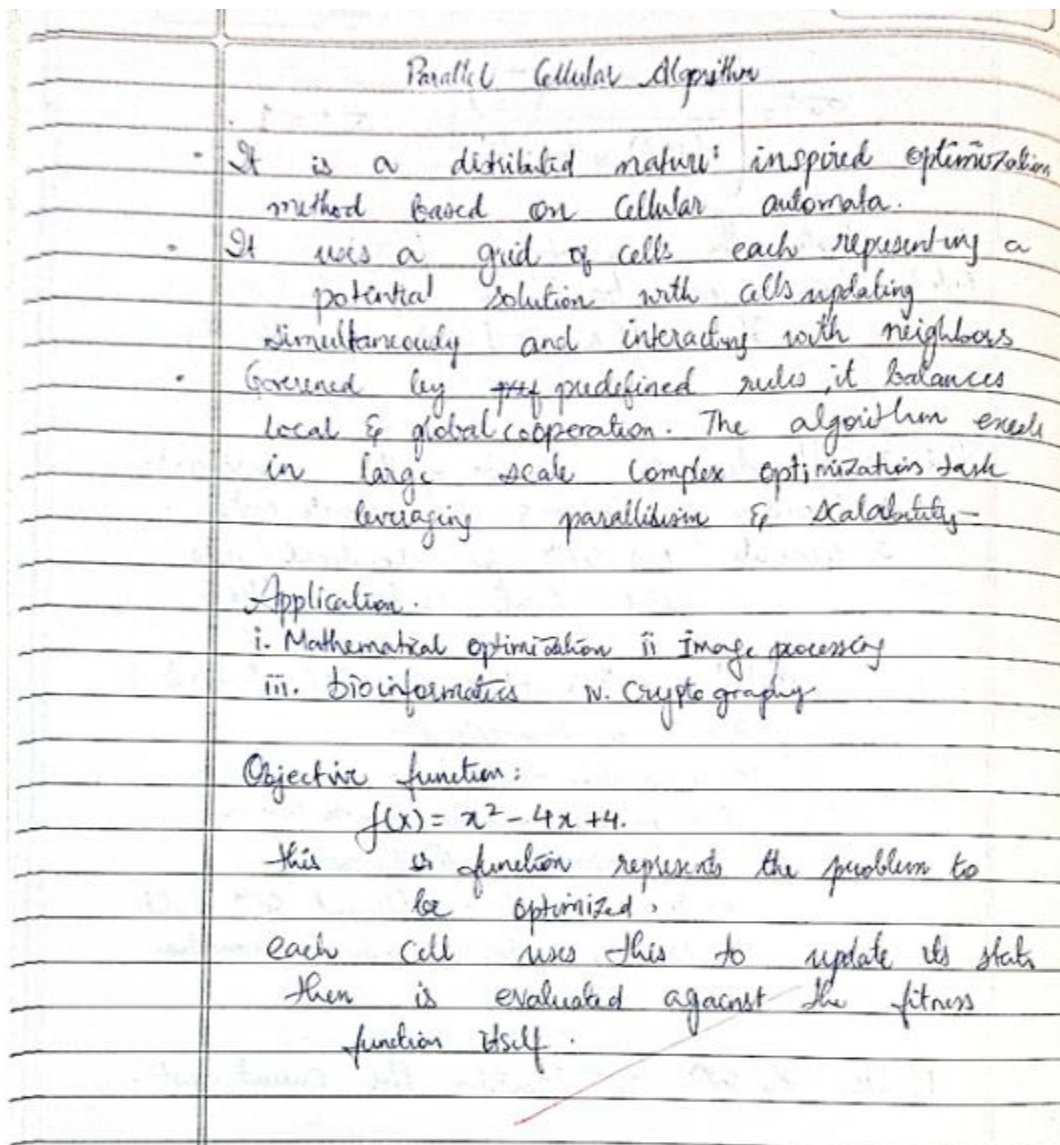 Parallel - Cellular Algorithm
- It is a distributed nature inspired optimization
method based on Cellular automata.
- It uses a grid of cells each representing a
potential solution with cells updating
simultaneously and interacting with neighbors
- Goverened by predefined rules, it balances
local & global cooperation. The algorithm excels
in large scale complex optimization task
leveraging parallelism & scalability-
Application.
i. Mathematical optimization ii Image processing
iii. bioinformatics iv. Cryptography
Objective function:
f(x) = x² - 4x + 4.
this is function represents the problem to
be optimized.
each cell uses this to update its state
then is evaluated against the fitness
function itself.